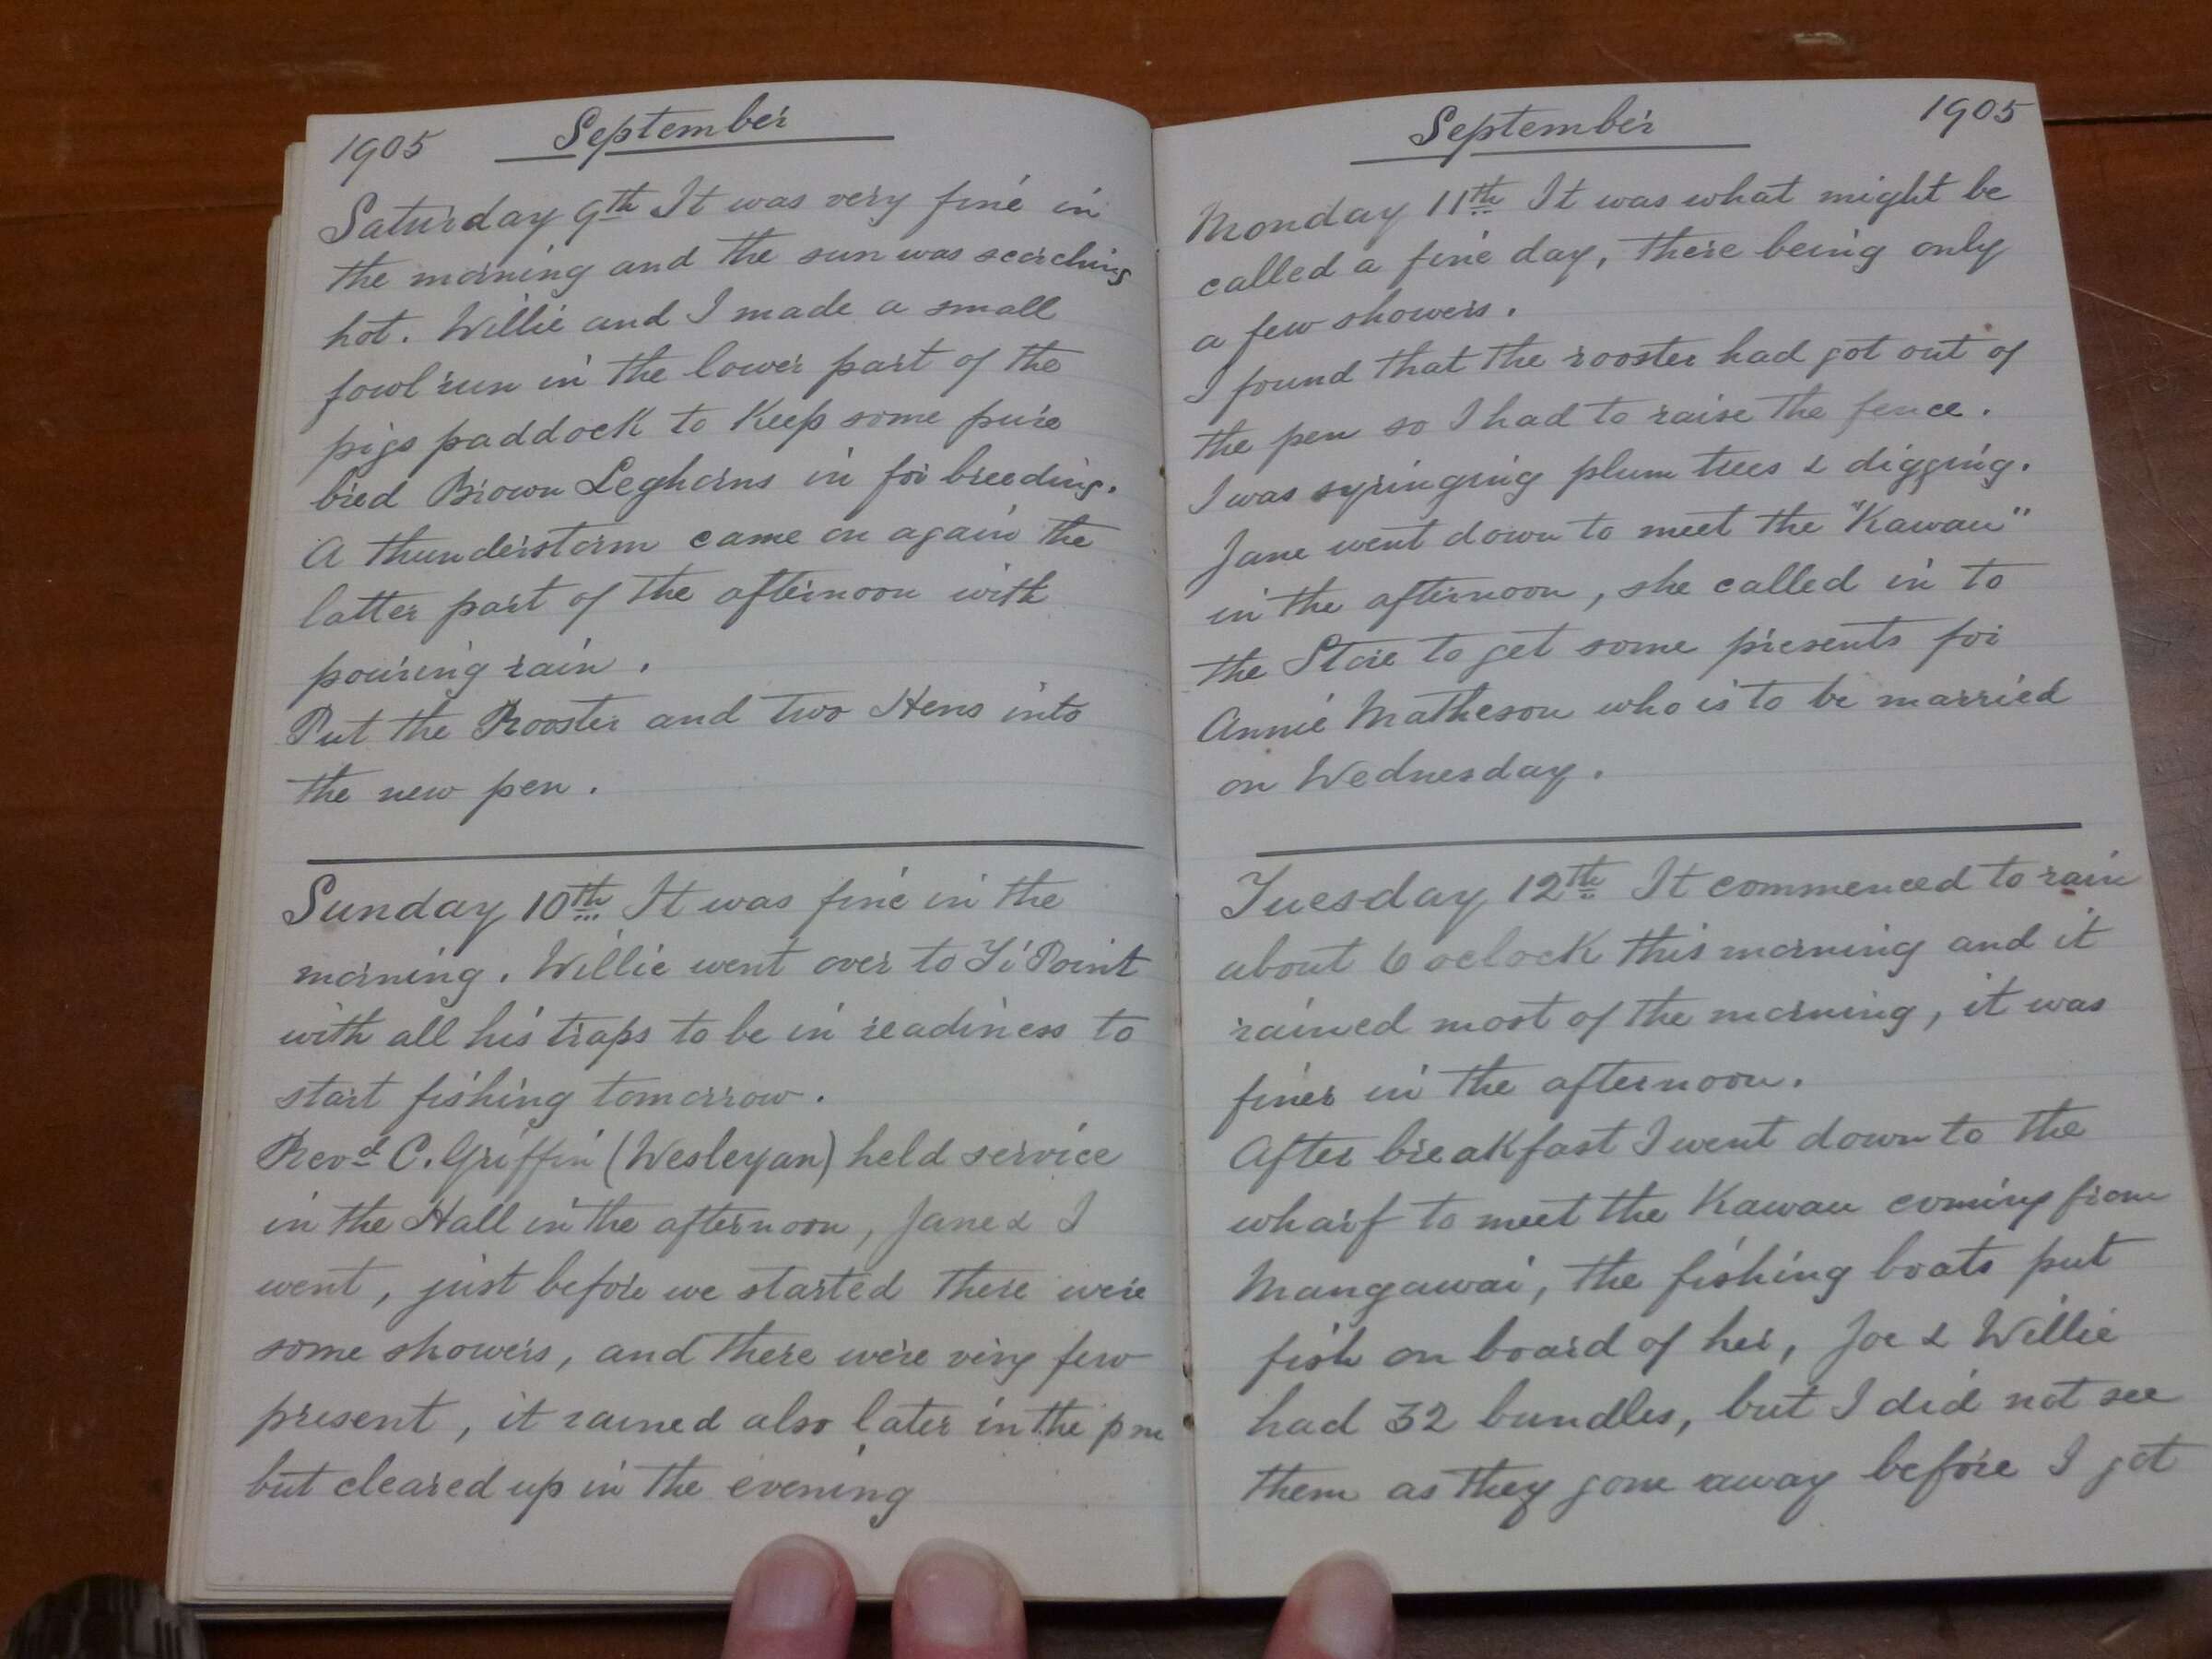 1905 September
Saturday 9th It was very fine in
the morning and the sun was scorching
hot. Willie and I made a small
fowl run in the lower part of the
pigs paddock to Keep some pure
bred Brown Leghorns in for breeding.
A thunderstorm came on again the
latter part of the afternoon with
pouring rain.
Put the Rooster and two Hens into
the new pen.
Sunday 10th It was fine in the
morning. Willie went over to Ti Point
with all his traps to be in readiness to
start fishing tomorrow.
Revd C. Griffin (Wesleyan) held service
in the Hall in the afternoon, Jane & I
went, just before we started there were
some showers, and there were very few
present, it rained also later in the pm
but cleared up in the evening
September 1905
Monday 11th It was what might be
called a fine day, there being only
a few showers.
I found that the rooster had got out of
the pen so I had to raise the fence.
I was syringing plum trees & digging.
Jane went down to meet the "Kawau"
in the afternoon, she called in to
the Store to get some presents for
Annie Matheson who is to be married
on Wednesday.
Tuesday 12th It commenced to rain
about 6 oclock this morning and it
rained most of the morning, it was
finer in the afternoon.
After breakfast I went down to the
wharf to meet the Kawau coming from
Mangawai, the fishing boats put
fish on board of her, Joe & Willie
had 32 bundles, but I did not see
them as they gone away before I got